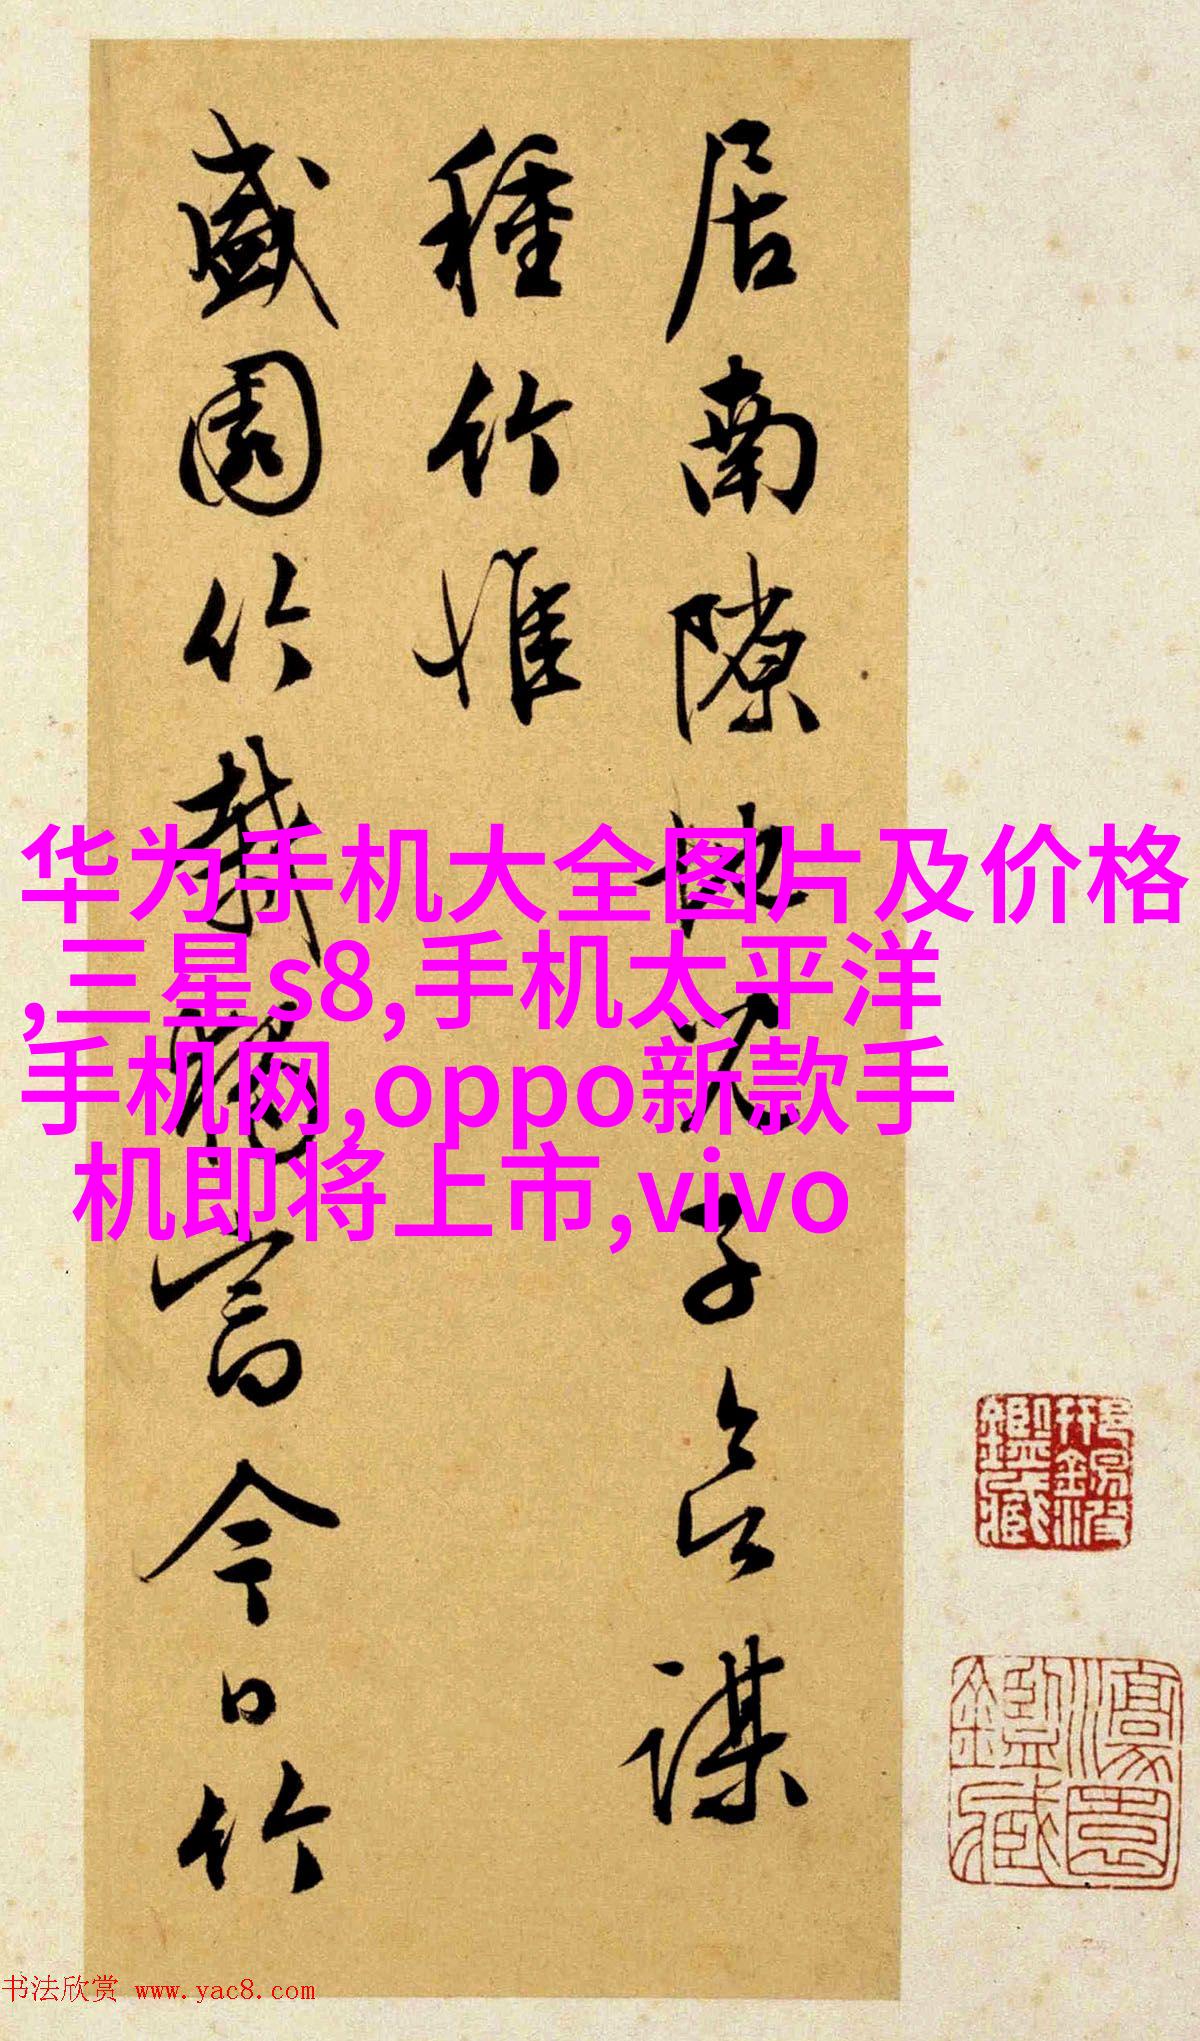 居南隙地兄子念祖謀
種竹惟
盛園竹栽獨富今日竹
华为手机大全图片及价格
,三星s8,手机太平洋
手机网,oppo新款手
机即将上市,vivo
鑑藏
鑑藏
书法欣赏 www.yac8.com